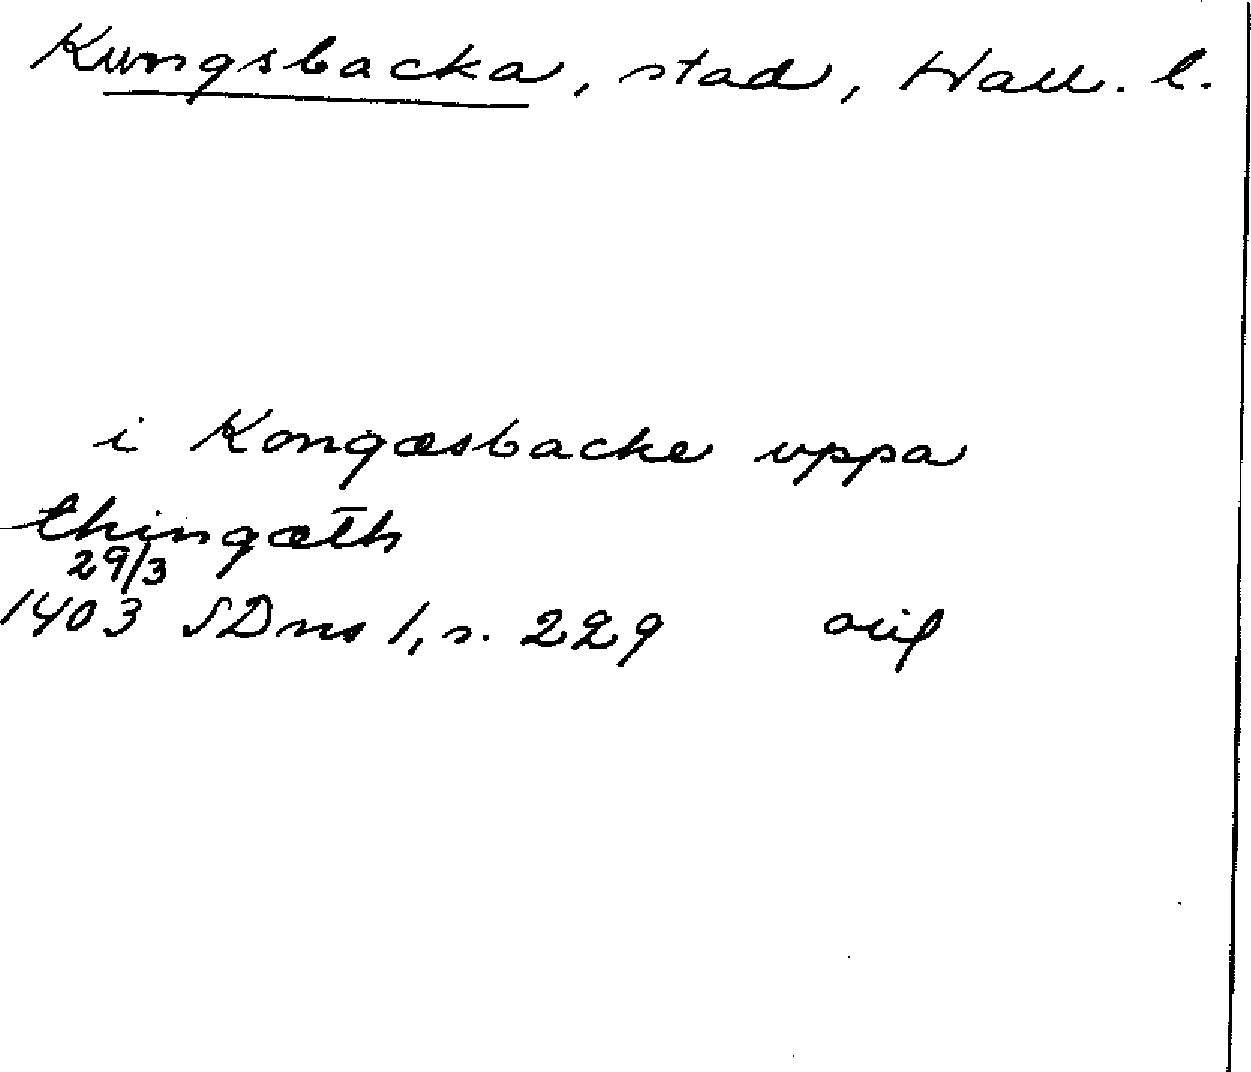 Kungsbacka, stad, Hall. l.
i Kongæsbacke uppa
thingæth
29/3
1403 SDns 1, s. 229